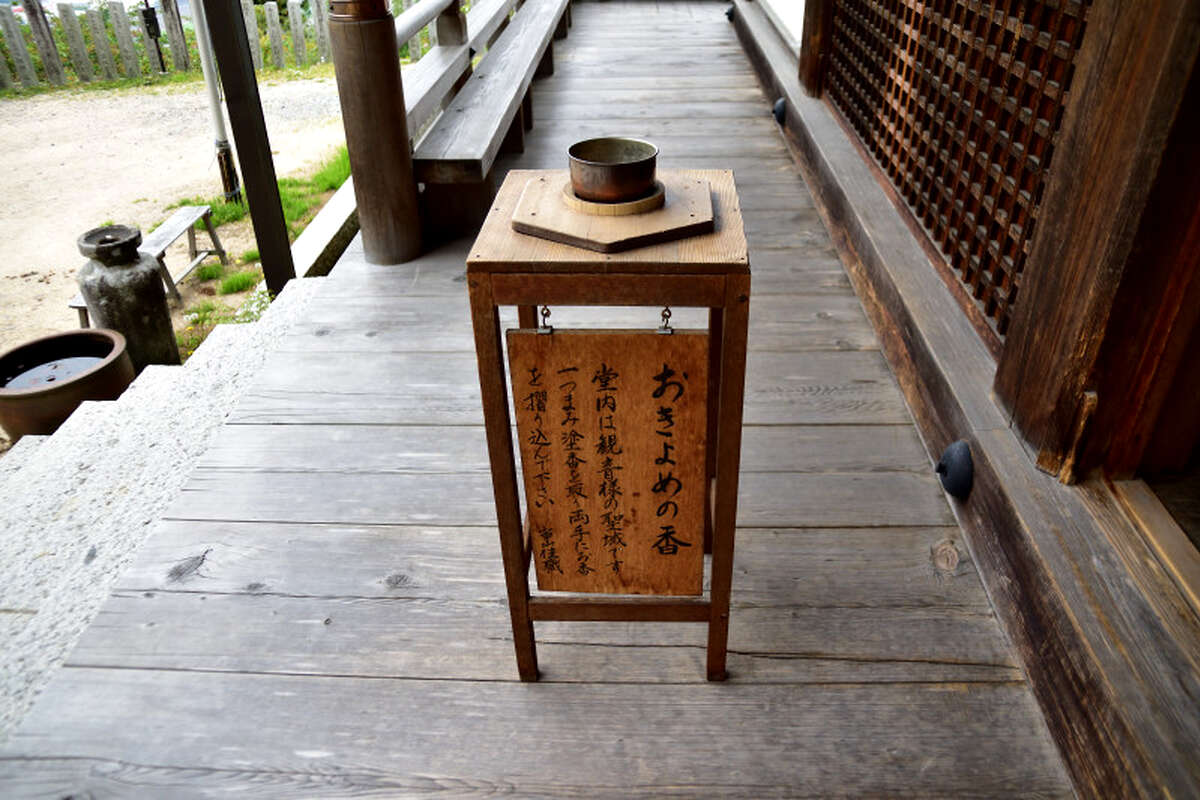 おきよめの香
堂内は観音様の聖域です
一つまみ塗香を取り両手にお香
を摺り込んで下さい
当山住職